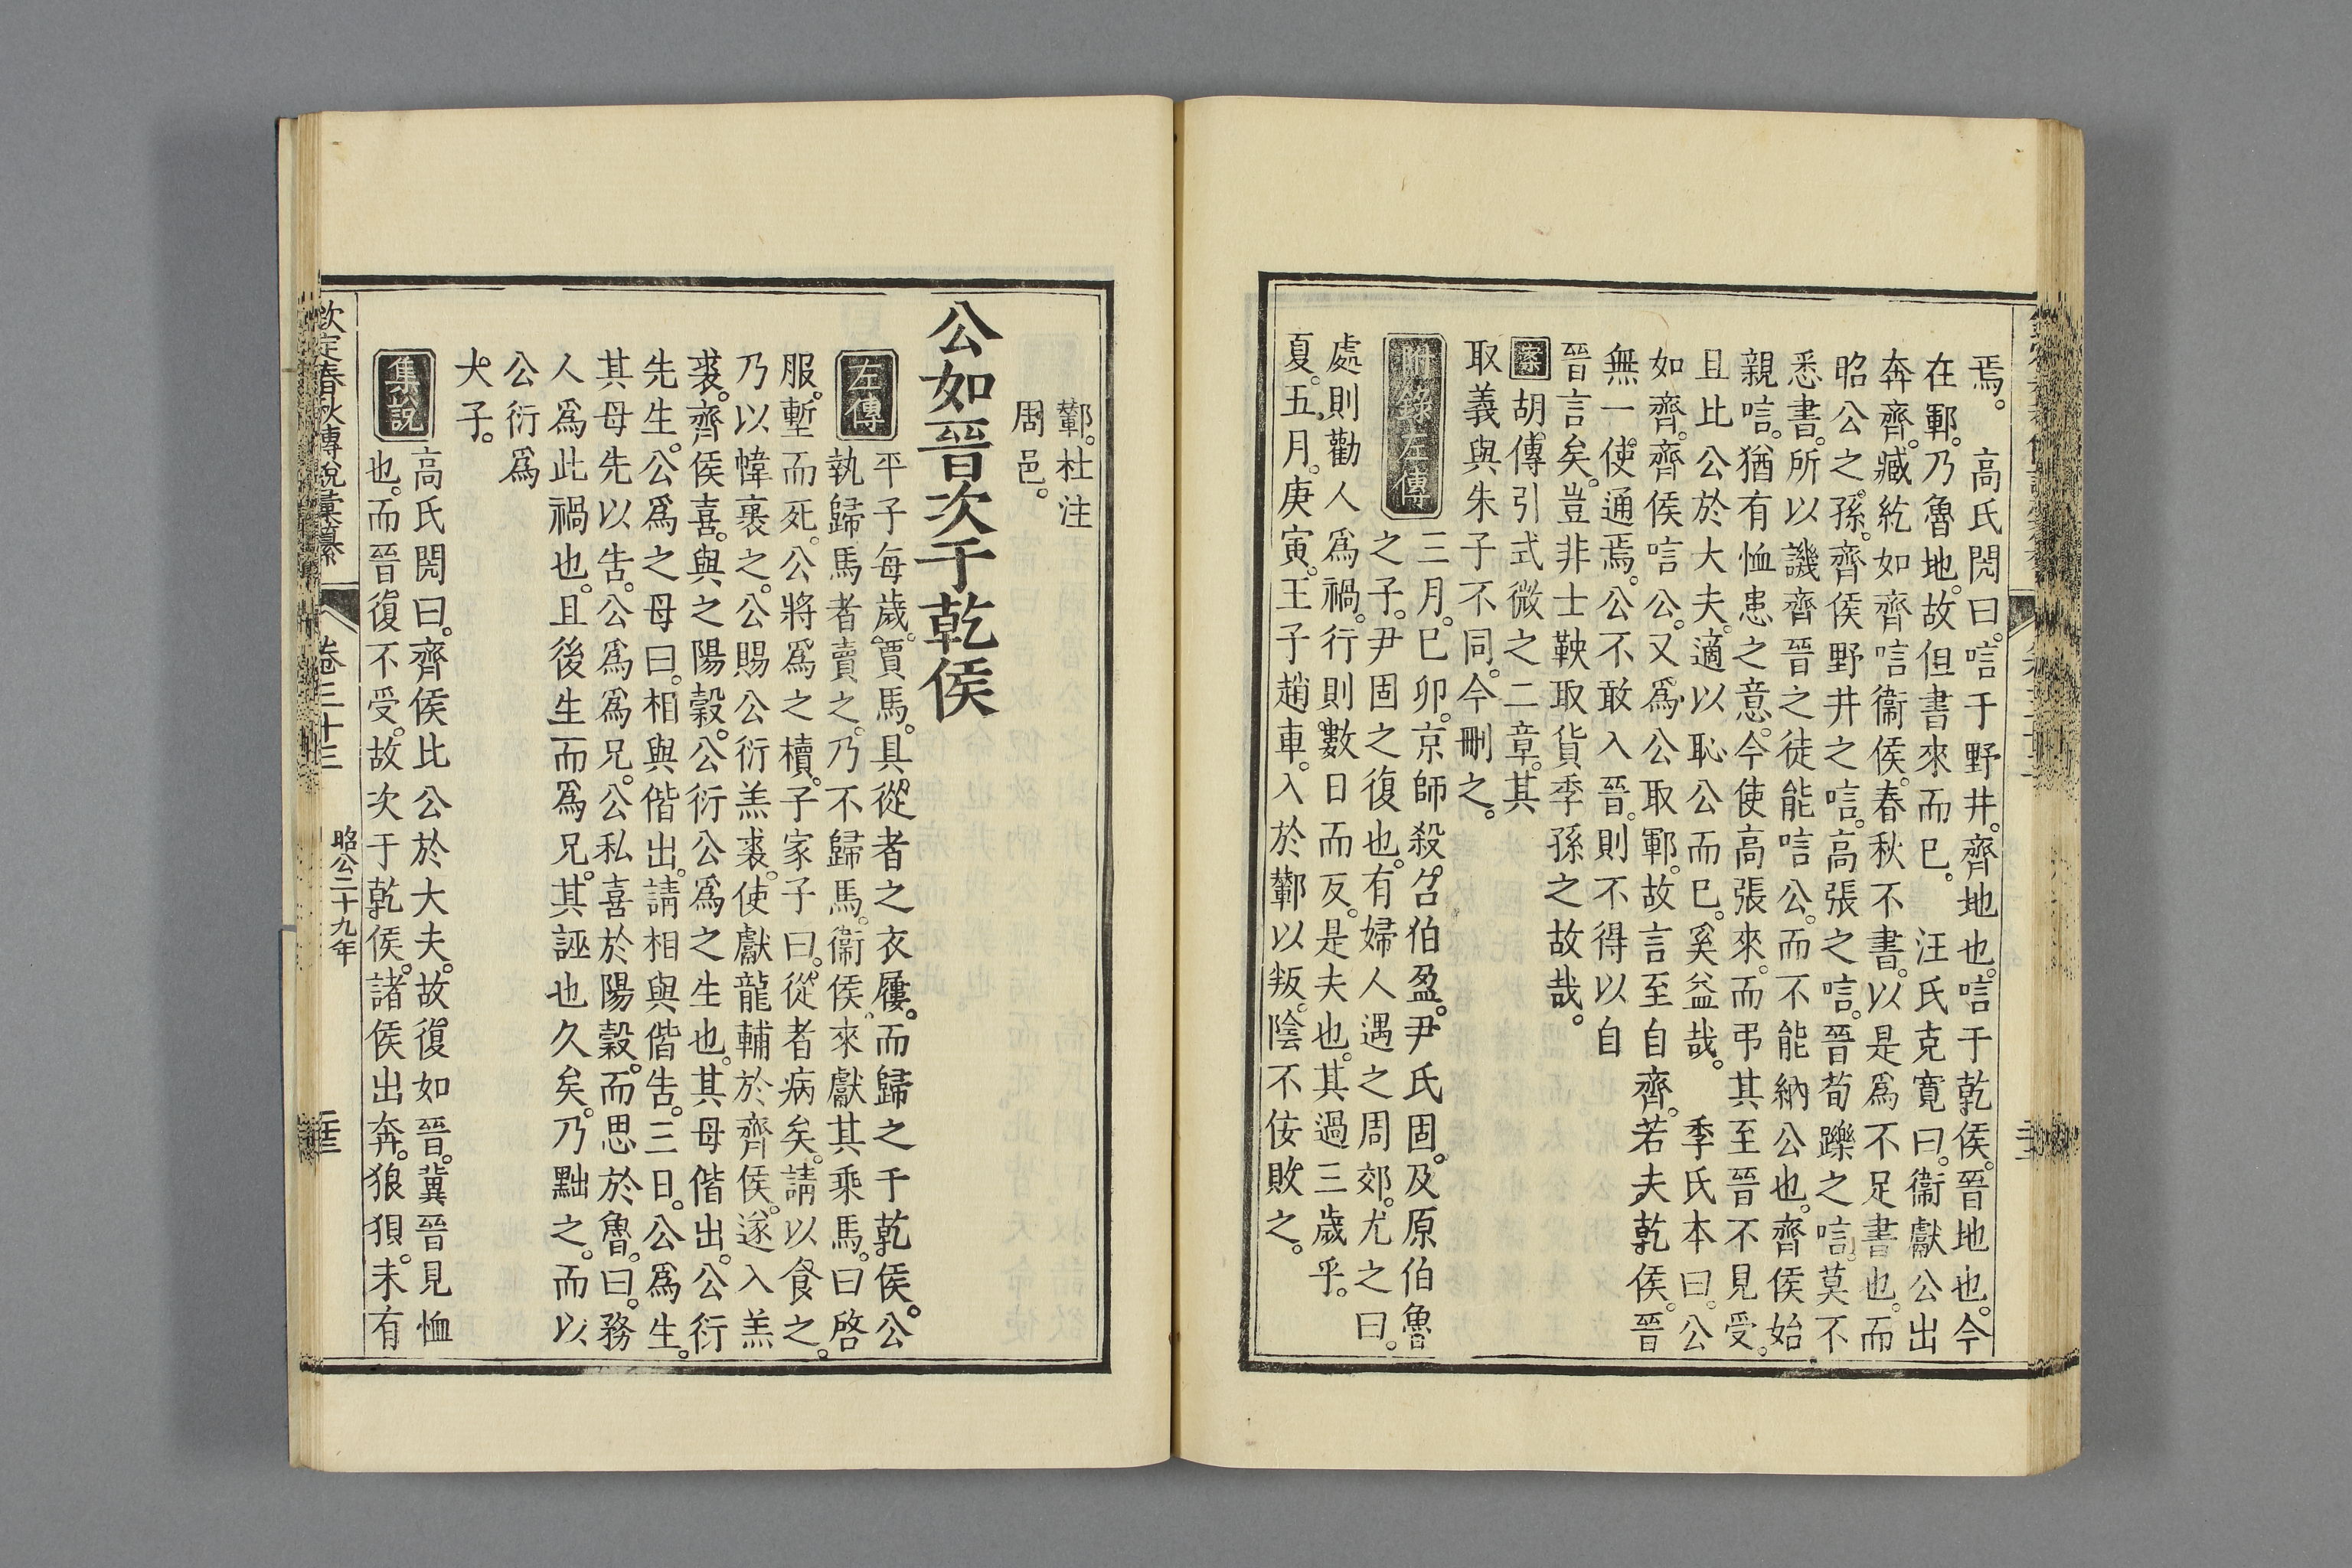 焉。 高氏閌曰。唁于野井。齊地也。唁于乾侯。晉地也。今
在鄆。乃魯地。故但書來而已。 汪氏克寬曰。衞獻公出
奔齊。臧紇如齊唁衞侯。春秋不書。以是爲不足書也。而
昭公之孫。齊侯野井之唁。高張之唁。晉荀躒之唁。莫不
悉書。所以譏齊晉之徒能唁公。而不能納公也。齊侯始
親唁。猶有恤患之意。今使高張來。而弔其至晉不見受。
且比公於大夫。適以恥公而已。奚益哉。 季氏本曰。公
如齊。齊侯唁公。又爲公取鄆。故言至自齊。若夫乾侯。晉
無一使通焉。公不敢入晉。則不得以自
晉言矣。豈非士鞅取貨季孫之故哉。
案胡傳引式微之二章。其
取義與朱子不同。今刪之。
附錄左傳
三月。己卯。京師殺召伯盈。尹氏固。及原伯魯
之子。尹固之復也。有婦人遇之周郊。尤之曰。
處則勸人爲禍。行則數日而反。是夫也。其過三歲乎。
夏。五月。庚寅。王子趙車。入於鄻以叛。陰不佞敗之。
鄻。杜注
周邑。
公如晉次于乾侯
左傳
平子每歲。賈馬。具從者之衣屨。而歸之于乾侯。公
執歸馬者賣之。乃不歸馬。衞侯來獻其乘馬。曰啓
服。塹而死。公將爲之櫝。子家子曰。從者病矣。請以食之。
乃以幃裹之。公賜公衍羔裘。使獻龍輔於齊侯。遂入羔
裘。齊侯喜。與之陽穀。公衍公爲之生也。其母偕出。公衍
先生。公爲之母曰。相與偕出。請相與偕告。三日。公爲生。
其母先以告。公爲爲兄。公私喜於陽穀。而思於魯。曰。務
人爲此禍也。且後生而爲兄。其誣也久矣。乃黜之。而以
公衍爲
大子。
集說
高氏閌曰。齊侯比公於大夫。故復如晉。冀晉見恤
也。而晉復不受。故次于乾侯。諸侯出奔。狼狽。未有
欽定春秋傳說彙纂
卷三十三
昭公二十九年